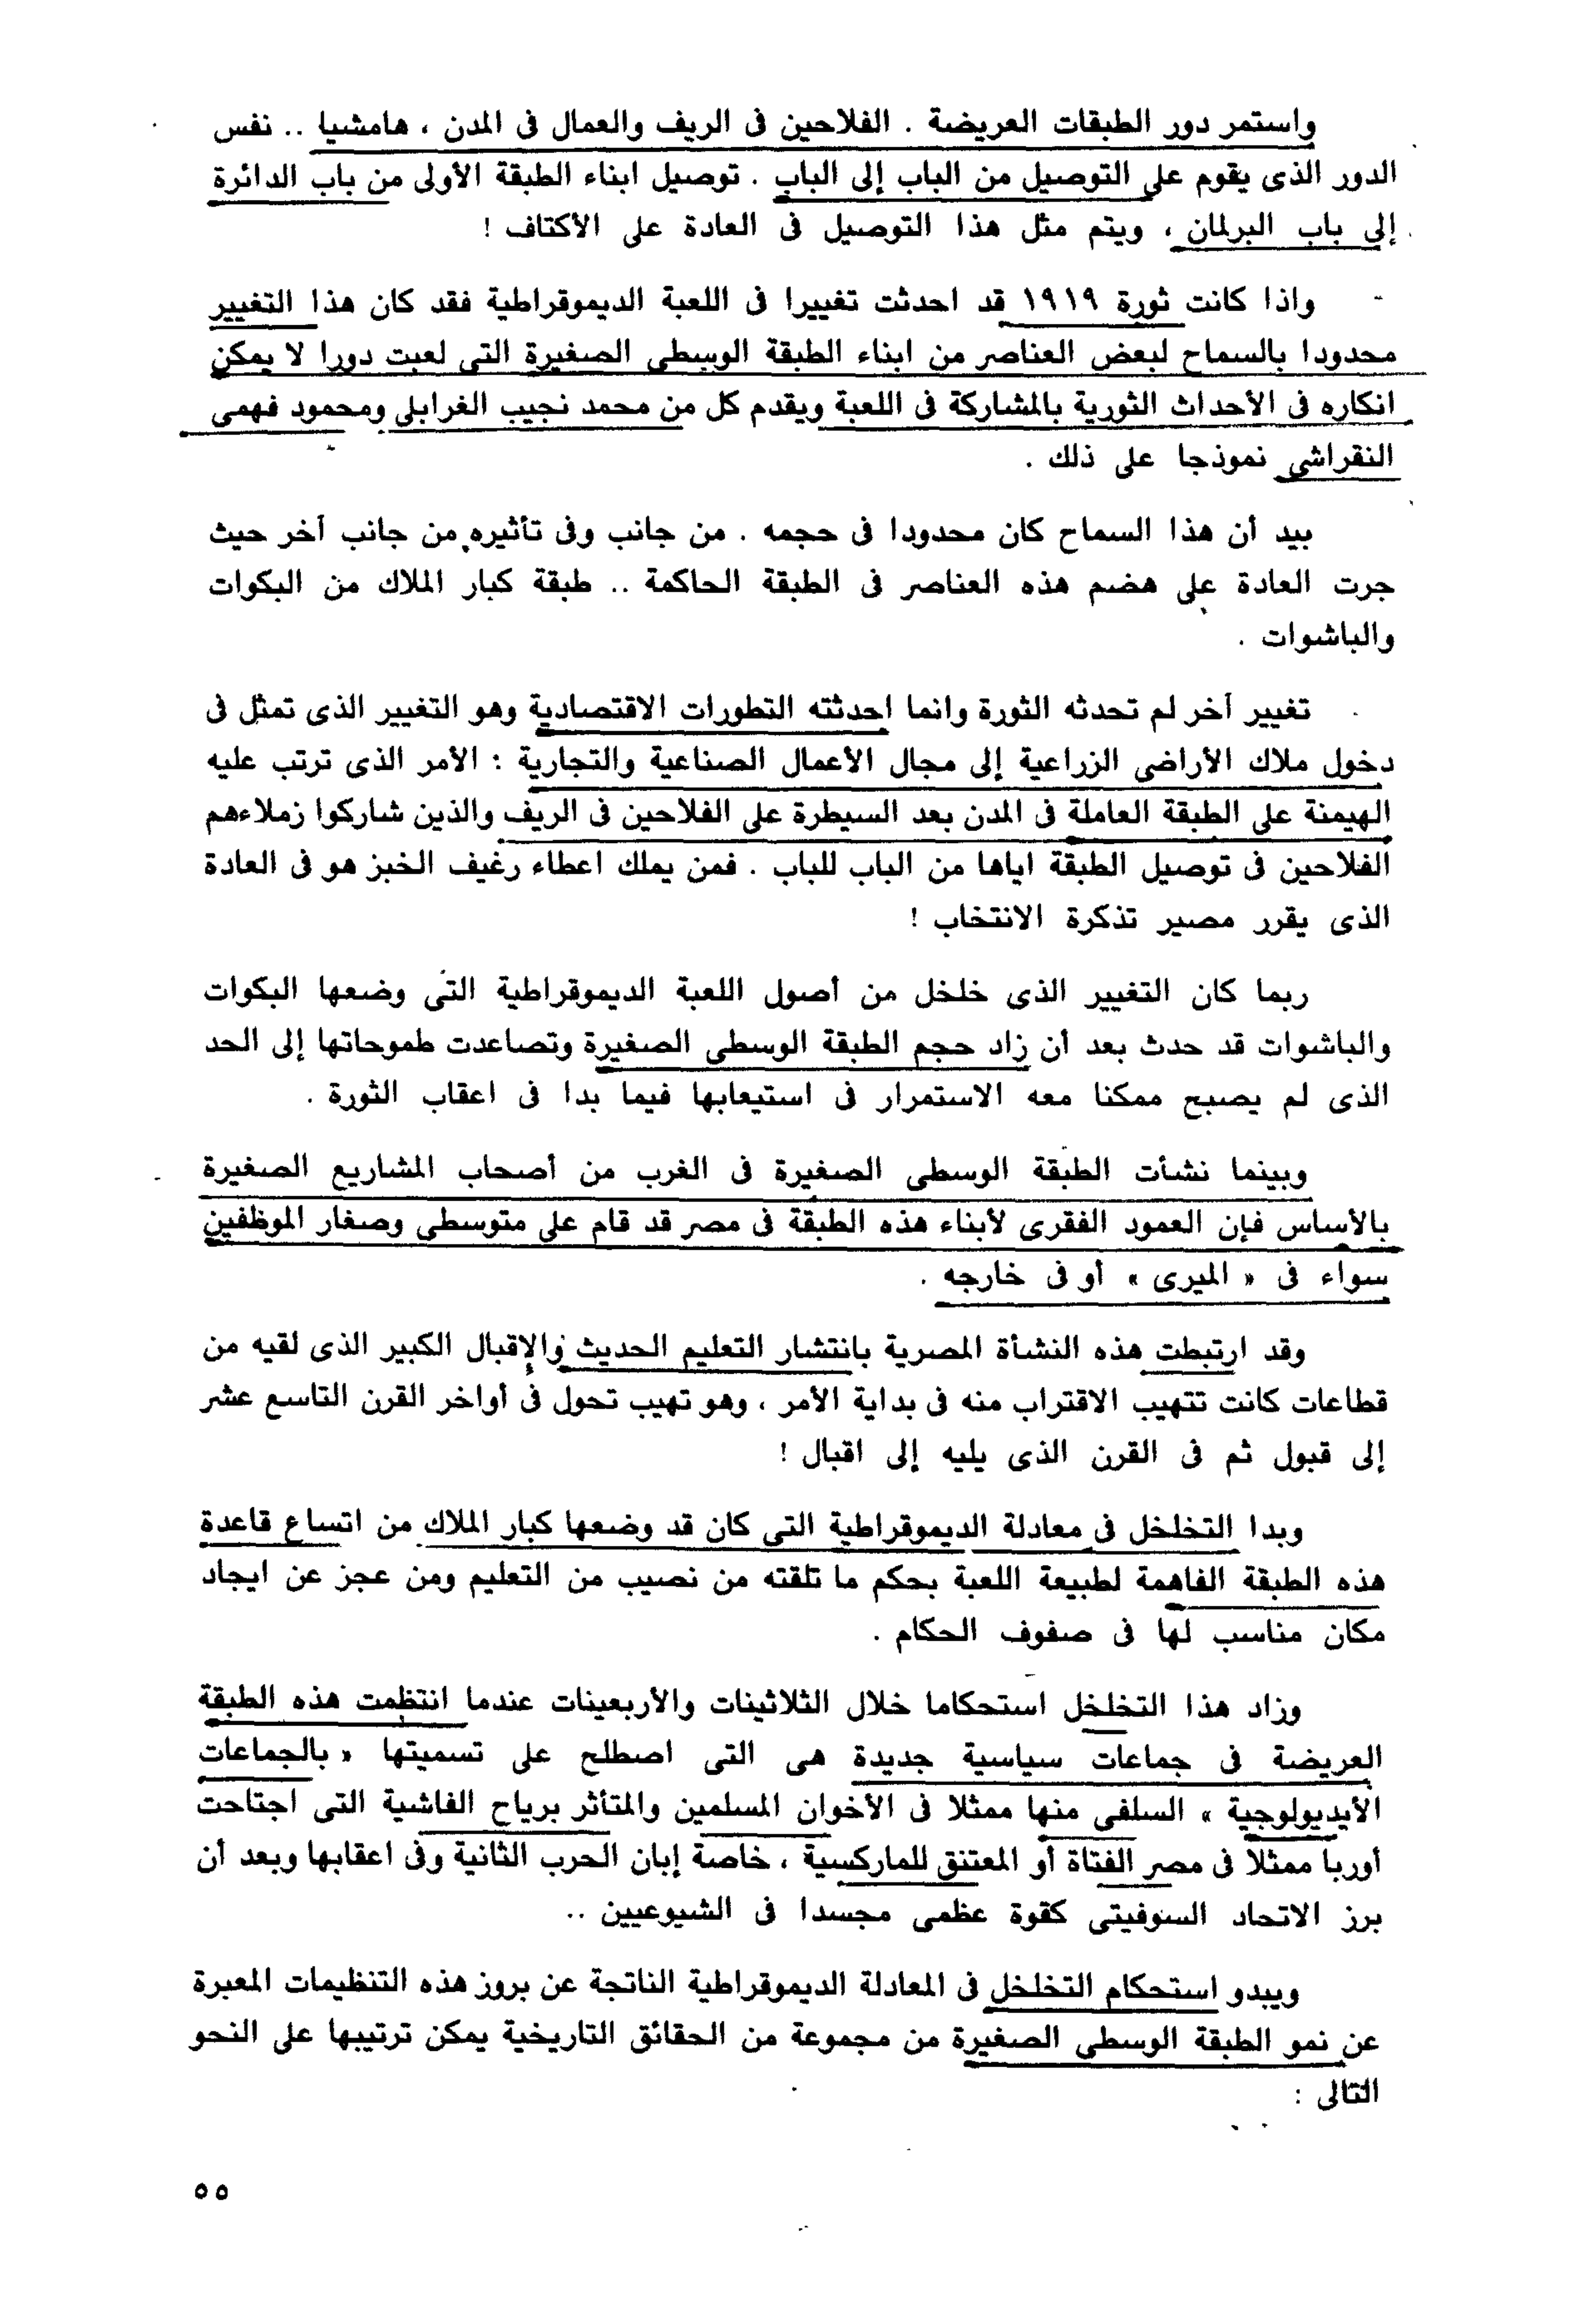 واستمر دور الطبقات العريضة . الفلاحين فى الريف والعمال فى المدن ، هامشيا .. نفس
الدور الذى يقوم على التوصيل من الباب إلى الباب . توصيل ابناء الطبقة الأولى من باب الدائرة
إلى باب البرلمان ، ويتم مثل هذا التوصيل فى العادة على الأكتاف !
واذا كانت ثورة ١٩١٩ قد احدثت تغييرا فى اللعبة الديموقراطية فقد كان هذا التغيير
محدودا بالسماح لبعض العناصر من ابناء الطبقة الوسطى الصغيرة التى لعبت دورا لا يمكن
انكاره فى الأحداث الثورية بالمشاركة فى اللعبة ويقدم كل من محمد نجيب الغرابلى ومحمود فهمى
النقراشى نموذجا على ذلك .
بيد أن هذا السماح كان محدودا فى حجمه . من جانب وفى تأثيره من جانب آخر حيث
جرت العادة على هضم هذه العناصر فى الطبقة الحاكمة .. طبقة كبار الملاك من البكوات
والباشوات .
تغيير آخر لم تحدثه الثورة وانما احدثته التطورات الاقتصادية وهو التغيير الذى تمثل فى
دخول ملاك الأراضى الزراعية إلى مجال الأعمال الصناعية والتجارية : الأمر الذى ترتب عليه
الهيمنة على الطبقة العاملة فى المدن بعد السيطرة على الفلاحين فى الريف والذين شاركوا زملاءهم
الفلاحين فى توصيل الطبقة اياها من الباب للباب . فمن يملك اعطاء رغيف الخبز هو فى العادة
الذى يقرر مصير تذكرة الانتخاب !
ربما كان التغيير الذى خلخل من أصول اللعبة الديموقراطية التى وضعها البكوات
والباشوات قد حدث بعد أن زاد حجم الطبقة الوسطى الصغيرة وتصاعدت طموحاتها إلى الحد
الذى لم يصبح ممكنا معه الاستمرار فى استيعابها فيما بدا فى اعقاب الثورة .
وبينما نشأت الطبقة الوسطى الصغيرة فى الغرب من أصحاب المشاريع الصغيرة
بالأساس فإن العمود الفقرى لأبناء هذه الطبقة فى مصر قد قام على متوسطى وصغار الموظفين
سواء فى « الميرى » أو فى خارجه .
وقد ارتبطت هذه النشأة المصرية بانتشار التعليم الحديث والإقبال الكبير الذى لقيه من
قطاعات كانت تتهيب الاقتراب منه فى بداية الأمر ، وهو تهيب تحول فى أواخر القرن التاسع عشر
إلى قبول ثم فى القرن الذى يليه إلى اقبال !
وبدا التخلخل فى معادلة الديموقراطية التى كان قد وضعها كبار الملاك من اتساع قاعدة
هذه الطبقة الفاهمة لطبيعة اللعبة بحكم ما تلقته من نصيب من التعليم ومن عجز عن ايجاد
مكان مناسب لها فى صفوف الحكام .
وزاد هذا التخلخل استحكاما خلال الثلاثينات والأربعينات عندما انتظمت هذه الطبقة
العريضة فى جماعات سياسية جديدة هى التى اصطلح على تسميتها « بالجماعات
الأيديولوجية » السلفى منها ممثلا فى الأخوان المسلمين والمتأثر برياح الفاشية التى اجتاحت
أوربا ممثلا فى مصر الفتاة أو المعتنق للماركسية ، خاصة إبان الحرب الثانية وفى اعقابها وبعد أن
برز الاتحاد السوفيتى كقوة عظمى مجسدا فى الشيوعيين ..
ويبدو استحكام التخلخل فى المعادلة الديموقراطية الناتجة عن بروز هذه التنظيمات المعبرة
عن نمو الطبقة الوسطى الصغيرة من مجموعة من الحقائق التاريخية يمكن ترتيبها على النحو
التالى :
٥٥